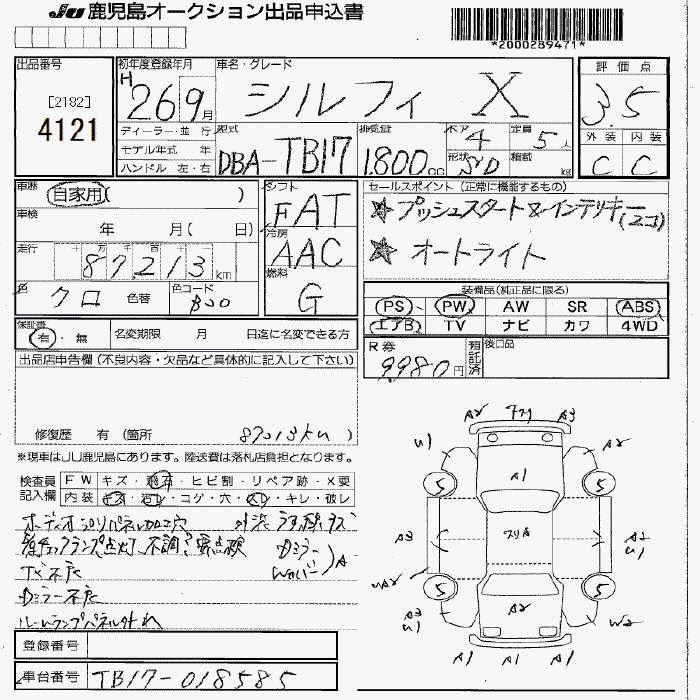 JU 鹿児島オークション出品申込書
*2000289471*
出品番号
[2182]
4121
初年度登録年月
H 26 9月
車名・グレード
シルフィ X
評価点
3.5
外装 内装
C C
ディーラー・並行
モデル年式 年
ハンドル 左・右
型式
DBA-TB17
排気量
1.800cc
ドア 4
形状 SD
定員 5人
積載 kg
車歴 自家用( )
車検 年 月( 日)
走行 十 万 千 百 十
87,213km
色 クロ 色替
色コード
シフト
FAT
冷房
AAC
燃料
G
セールスポイント(正常に機能するもの)
★プッシュスタート&インテリキー(2コ)
★オートライト
装備品(純正品に限る)
PS PW AW SR ABS
エアB TV ナビ カワ 4WD
保証書
有・無
名変期限 月 日迄に名変できる方
R券
9980円
預託済
後日品
出品店申告欄(不良内容・欠品など具体的に記入して下さい)
修復歴 有(箇所 )
※現車はJU鹿児島にあります。陸送費は落札店負担となります。
検査員記入欄
FW キズ・飛石・ヒビ割・リペア跡・X要
内装 キズ・汚レ・コゲ・穴・スレ・キレ・破レ
ルームランプパネル外れ
A2 A3
U1 A2
5 5
A1
A3 A2 U1
5 5
A3 U1 A2 W2
A1 A1 A1
登録番号
車台番号 TB17-018585